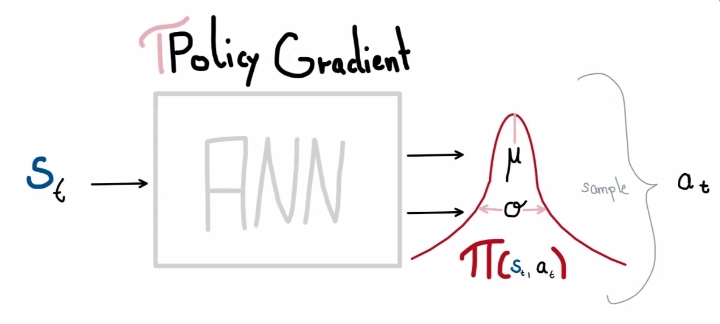 π Policy Gradient
S_t
ANN
μ
σ
π(s_t, a_t)
sample
a_t